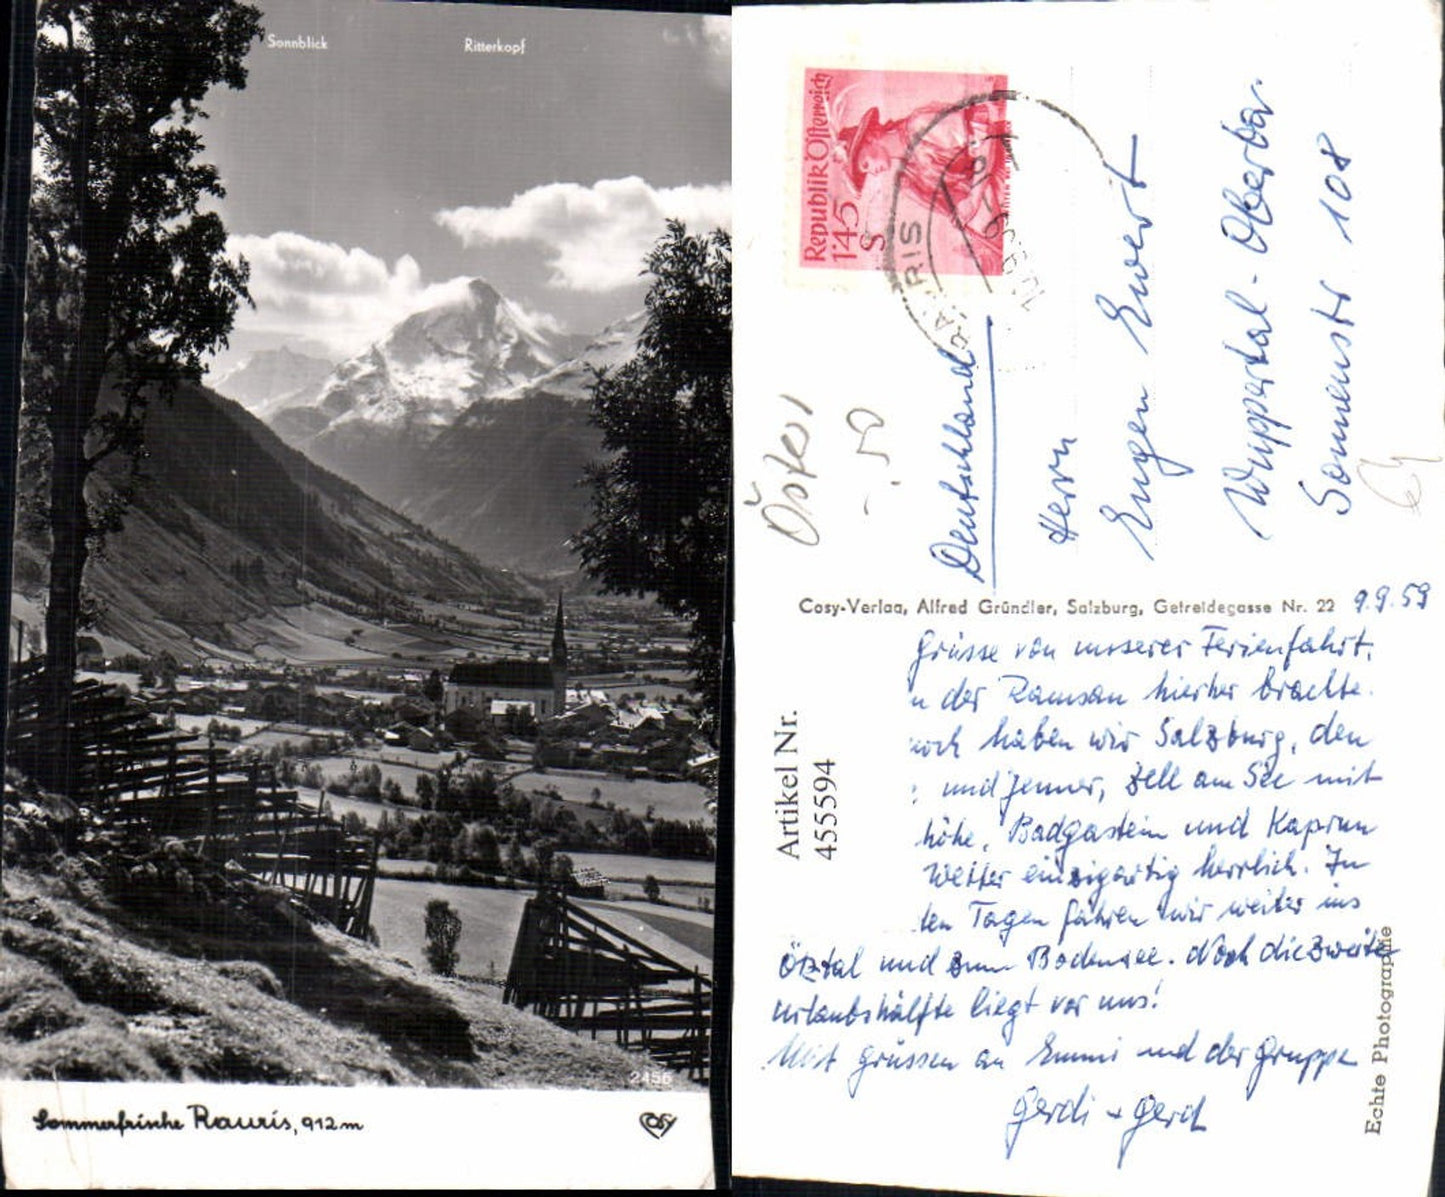 Sonnblick
Ritterkopf
2456
Sommerfrische Rauris, 912 m
COSY
Republik Österreich
1'45
S
RAURIS
Öster
-.50
Deutschland
Herrn
Eugen Ewert
Wuppertal-Oberba.
Sonnenstr 108
Cosy-Verlag, Alfred Gründler, Salzburg, Getreidegasse Nr. 22
9.9.59
Grüsse von unserer Ferienfahrt.
n der Ramsau hierher brachte.
noch haben wir Salzburg, den
und Jenner, Zell am See mit
höhe, Badgastein und Kaprun
Wetter einzigartig herrlich. In
ten Tagen fahren wir weiter ins
Ötztal und zum Bodensee. Noch die zweite
Urlaubshälfte liegt vor uns!
Mit Grüssen an Emmi und der Gruppe
Gerdi + Gerd
Artikel Nr.
455594
Echte Photographie